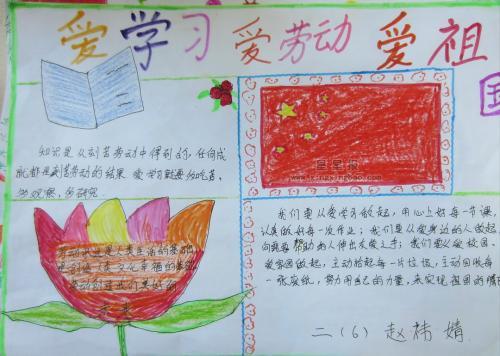 爱学习 爱劳动 爱祖
国
知识是从刻苦劳动中得到的,任何成
就都是刻苦劳动的结果 爱学习就要多吃苦、
多观察、多研究.
劳动永远是人类生活的基础
是创造人类文化幸福的基础
劳动创造我们美好的
未来
我们要从爱学习做起,用心上好每一节课,
认真做好每一次作业;我们要从爱身边的人做起,
向需要帮助的人伸出友爱之手;我们要从爱校园、
爱家园做起,主动拾起每一片垃圾,主动回收每
一张废纸,努力用自己的力量,来实现祖国的
二(6) 赵祎婧